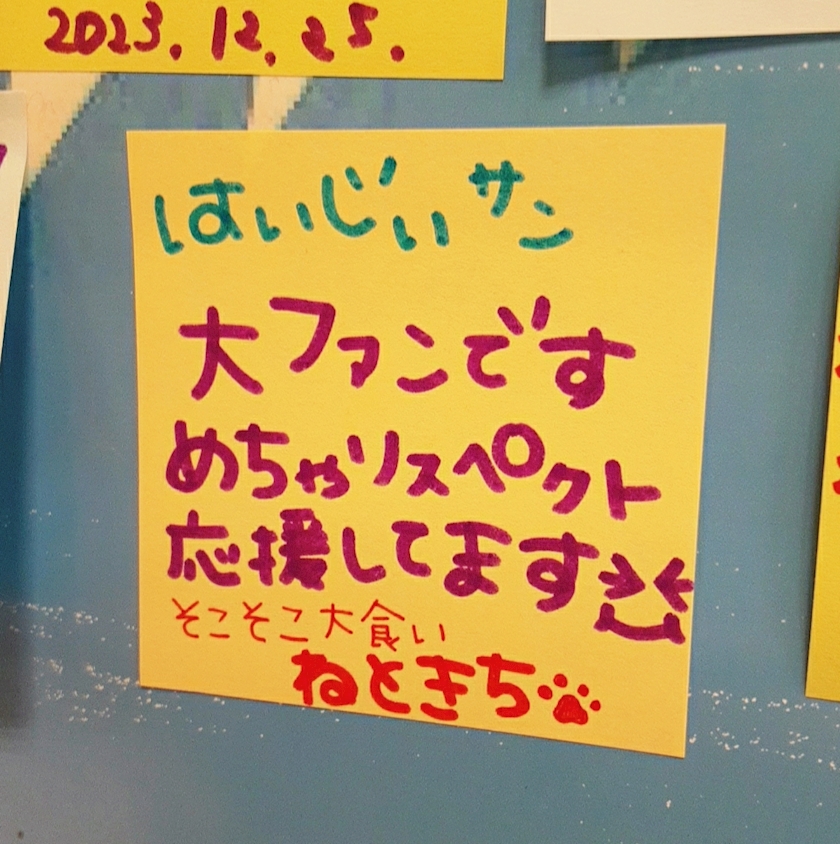 2023.12.25.
はいじぃサン
大ファンです
めちゃリスペクト
応援してます
そこそこ大食い
ねときち